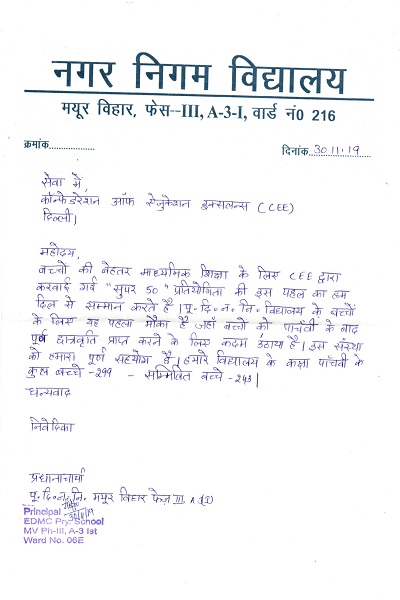 नगर निगम विद्यालय
मयूर विहार, फेस--III, A-3-I, वार्ड नं0 216
क्रमांक..................
दिनांक 30.11.19
सेवा में,
कॉन्फेडरेशन ऑफ ऐजुकेशन इक्सलन्स (CEE)
दिल्ली।
महोदय,
बच्चों की बेहतर माध्यमिक शिक्षा के लिए CEE द्वारा
करवाई गई "सुपर 50" प्रतियोगिता की इस पहल का हम
दिल से सम्मान करते है। पू.दि.न.नि.विद्यालय के बच्चों
के लिए यह पहला मौका है जहाँ बच्चों को पाँचवी के बाद
पूर्ण छात्रवृति प्राप्त करने के लिए कदम उठाया है। इस संस्था
को हमारा पूर्ण सहयोग है। हमारे विद्यालय के कक्षा पाँचवी के
कुल बच्चे -299 - सम्मिलित बच्चे -243।
धन्यवाद
निवेदिका
प्रधानाचार्या
पू.दि.न.नि. मयूर विहार फेज़ III A3(I)
Principal
30/11/19
EDMC Pry. School
MV Ph-III, A-3 Ist
Ward No. 06E